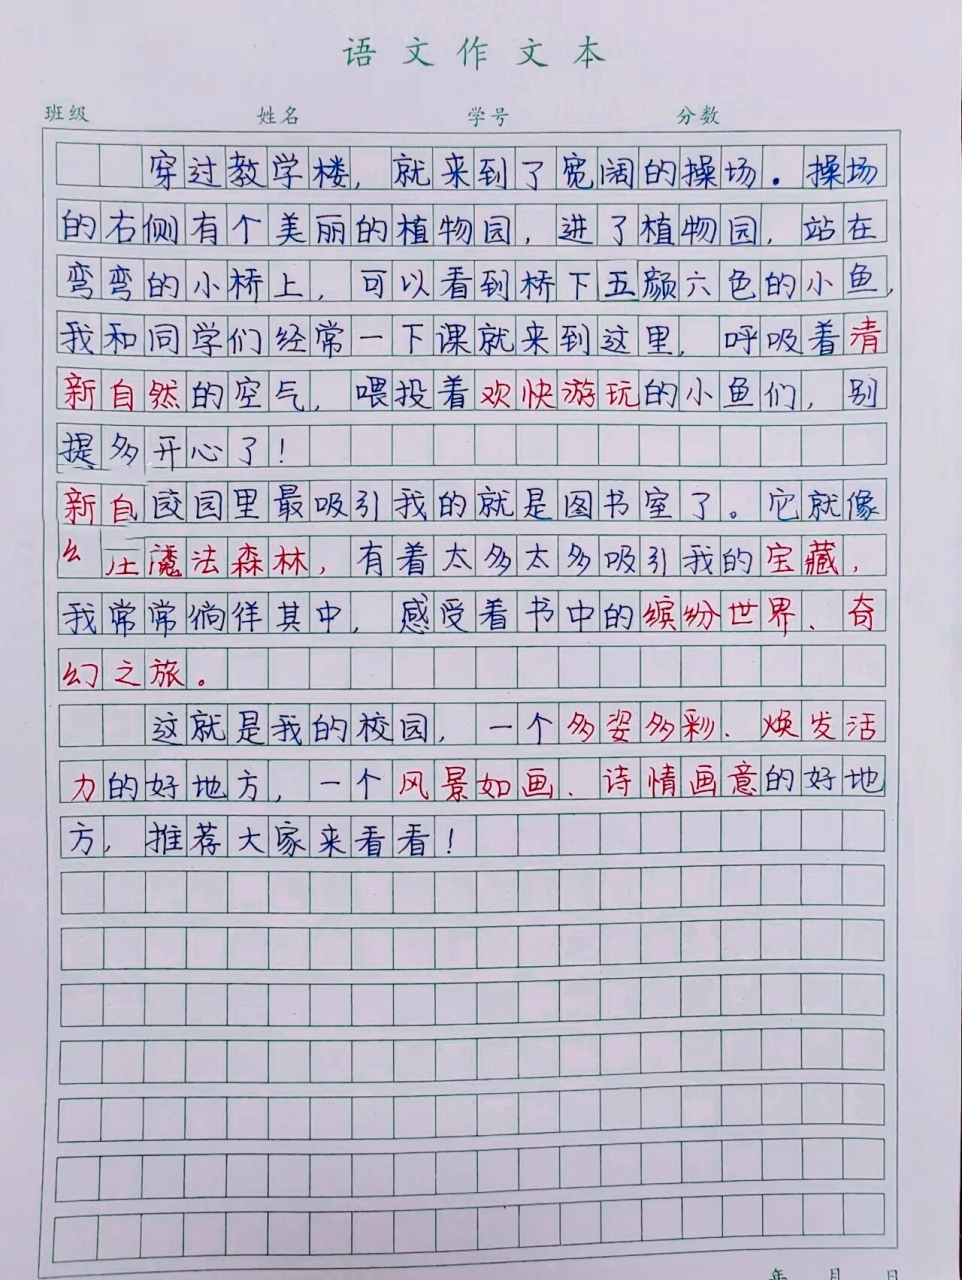 语文作文本
班级 姓名 学号 分数
穿过教学楼，就来到了宽阔的操场。操场
的右侧有个美丽的植物园，进了植物园，站在
弯弯的小桥上，可以看到桥下五颜六色的小鱼，
我和同学们经常一下课就来到这里，呼吸着清
新自然的空气，喂投着欢快游玩的小鱼们，别
提多开心了！
新自园里最吸引我的就是图书室了。它就像
魔法森林，有着太多太多吸引我的宝藏，
我常常徜徉其中，感受着书中的缤纷世界、奇
幻之旅。
这就是我的校园，一个多姿多彩、焕发活
力的好地方，一个风景如画、诗情画意的好地
方，推荐大家来看看！
年 月 日